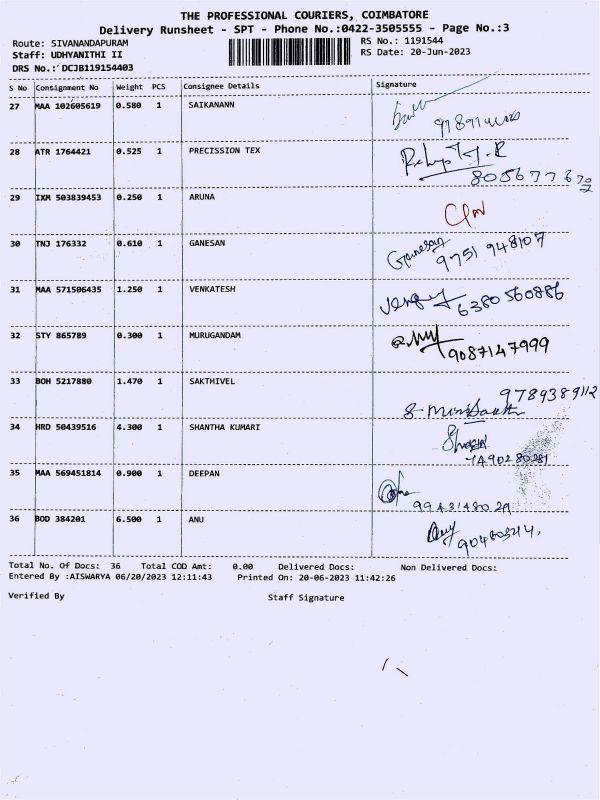 THE PROFESSIONAL COURIERS, COIMBATORE
Delivery Runsheet - SPT - Phone No.:0422-3505555 - Page No.:3
Route: SIVANANDAPURAM RS No.: 1191544
Staff: UDHYANITHI II RS Date: 20-Jun-2023
DRS No.: DCJB119154403
S No Consignment No Weight PCS Consignee Details Signature
27 MAA 102605619 0.580 1 SAIKANANN
28 ATR 1764421 0.525 1 PRECISSION TEX
8056777672
29 IXM 503839453 0.250 1 ARUNA
30 TNJ 176332 0.610 1 GANESAN Ganesan
9751 948107
31 MAA 571506435 1.250 1 VENKATESH
6380 560886
32 STY 865789 0.300 1 MURUGANDAM
9087147999
33 BOH 5217880 1.470 1 SAKTHIVEL 9789389112
34 HRD 50439516 4.300 1 SHANTHA KUMARI
7490280281
35 MAA 569451814 0.900 1 DEEPAN
9943148029
36 BOD 384201 6.500 1 ANU
Total No. Of Docs: 36 Total COD Amt: 0.00 Delivered Docs: Non Delivered Docs:
Entered By :AISWARYA 06/20/2023 12:11:43 Printed On: 20-06-2023 11:42:26
Verified By Staff Signature